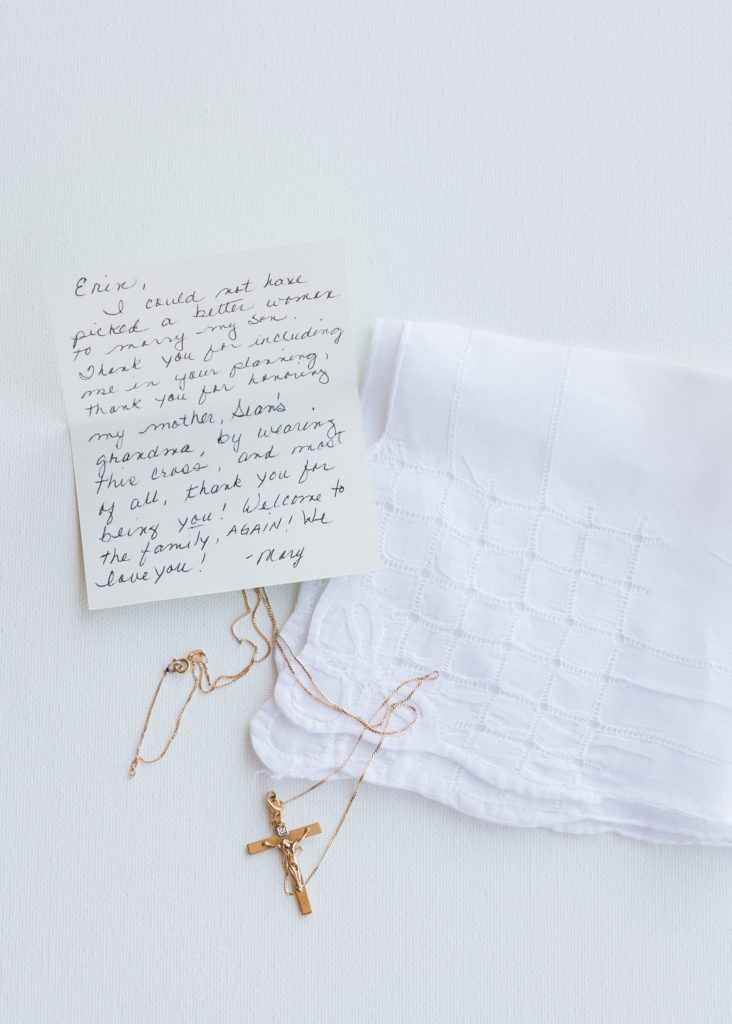 Erin,
I could not have
picked a better woman
to marry my son.
Thank you for including
me in your planning,
thank you for honoring
my mother, Sean's
grandma, by wearing
this cross, and most
of all, thank you for
being you! Welcome to
the family, AGAIN! We
love you! -Mary